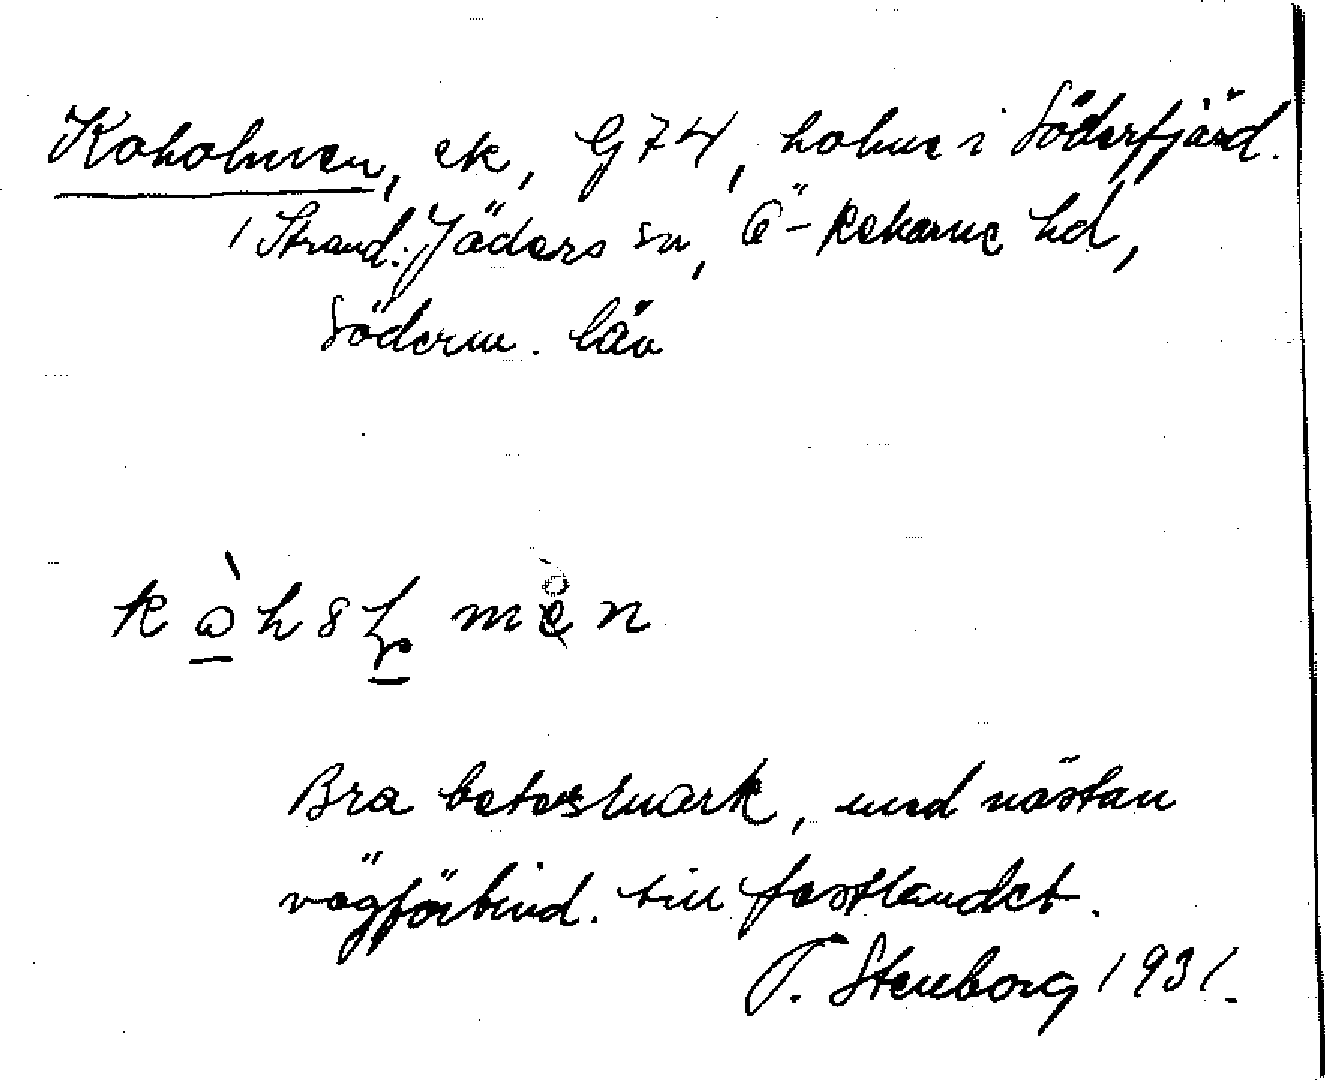 Koholmen, ek, G74, holme i Söderfjärd.
/ Strand. Jäders sn, Ö-Rekarne hd,
Söderm. län
Bra betesmark, med nästan
vägförbind. till fastlandet.
T. Stenborg 1931.